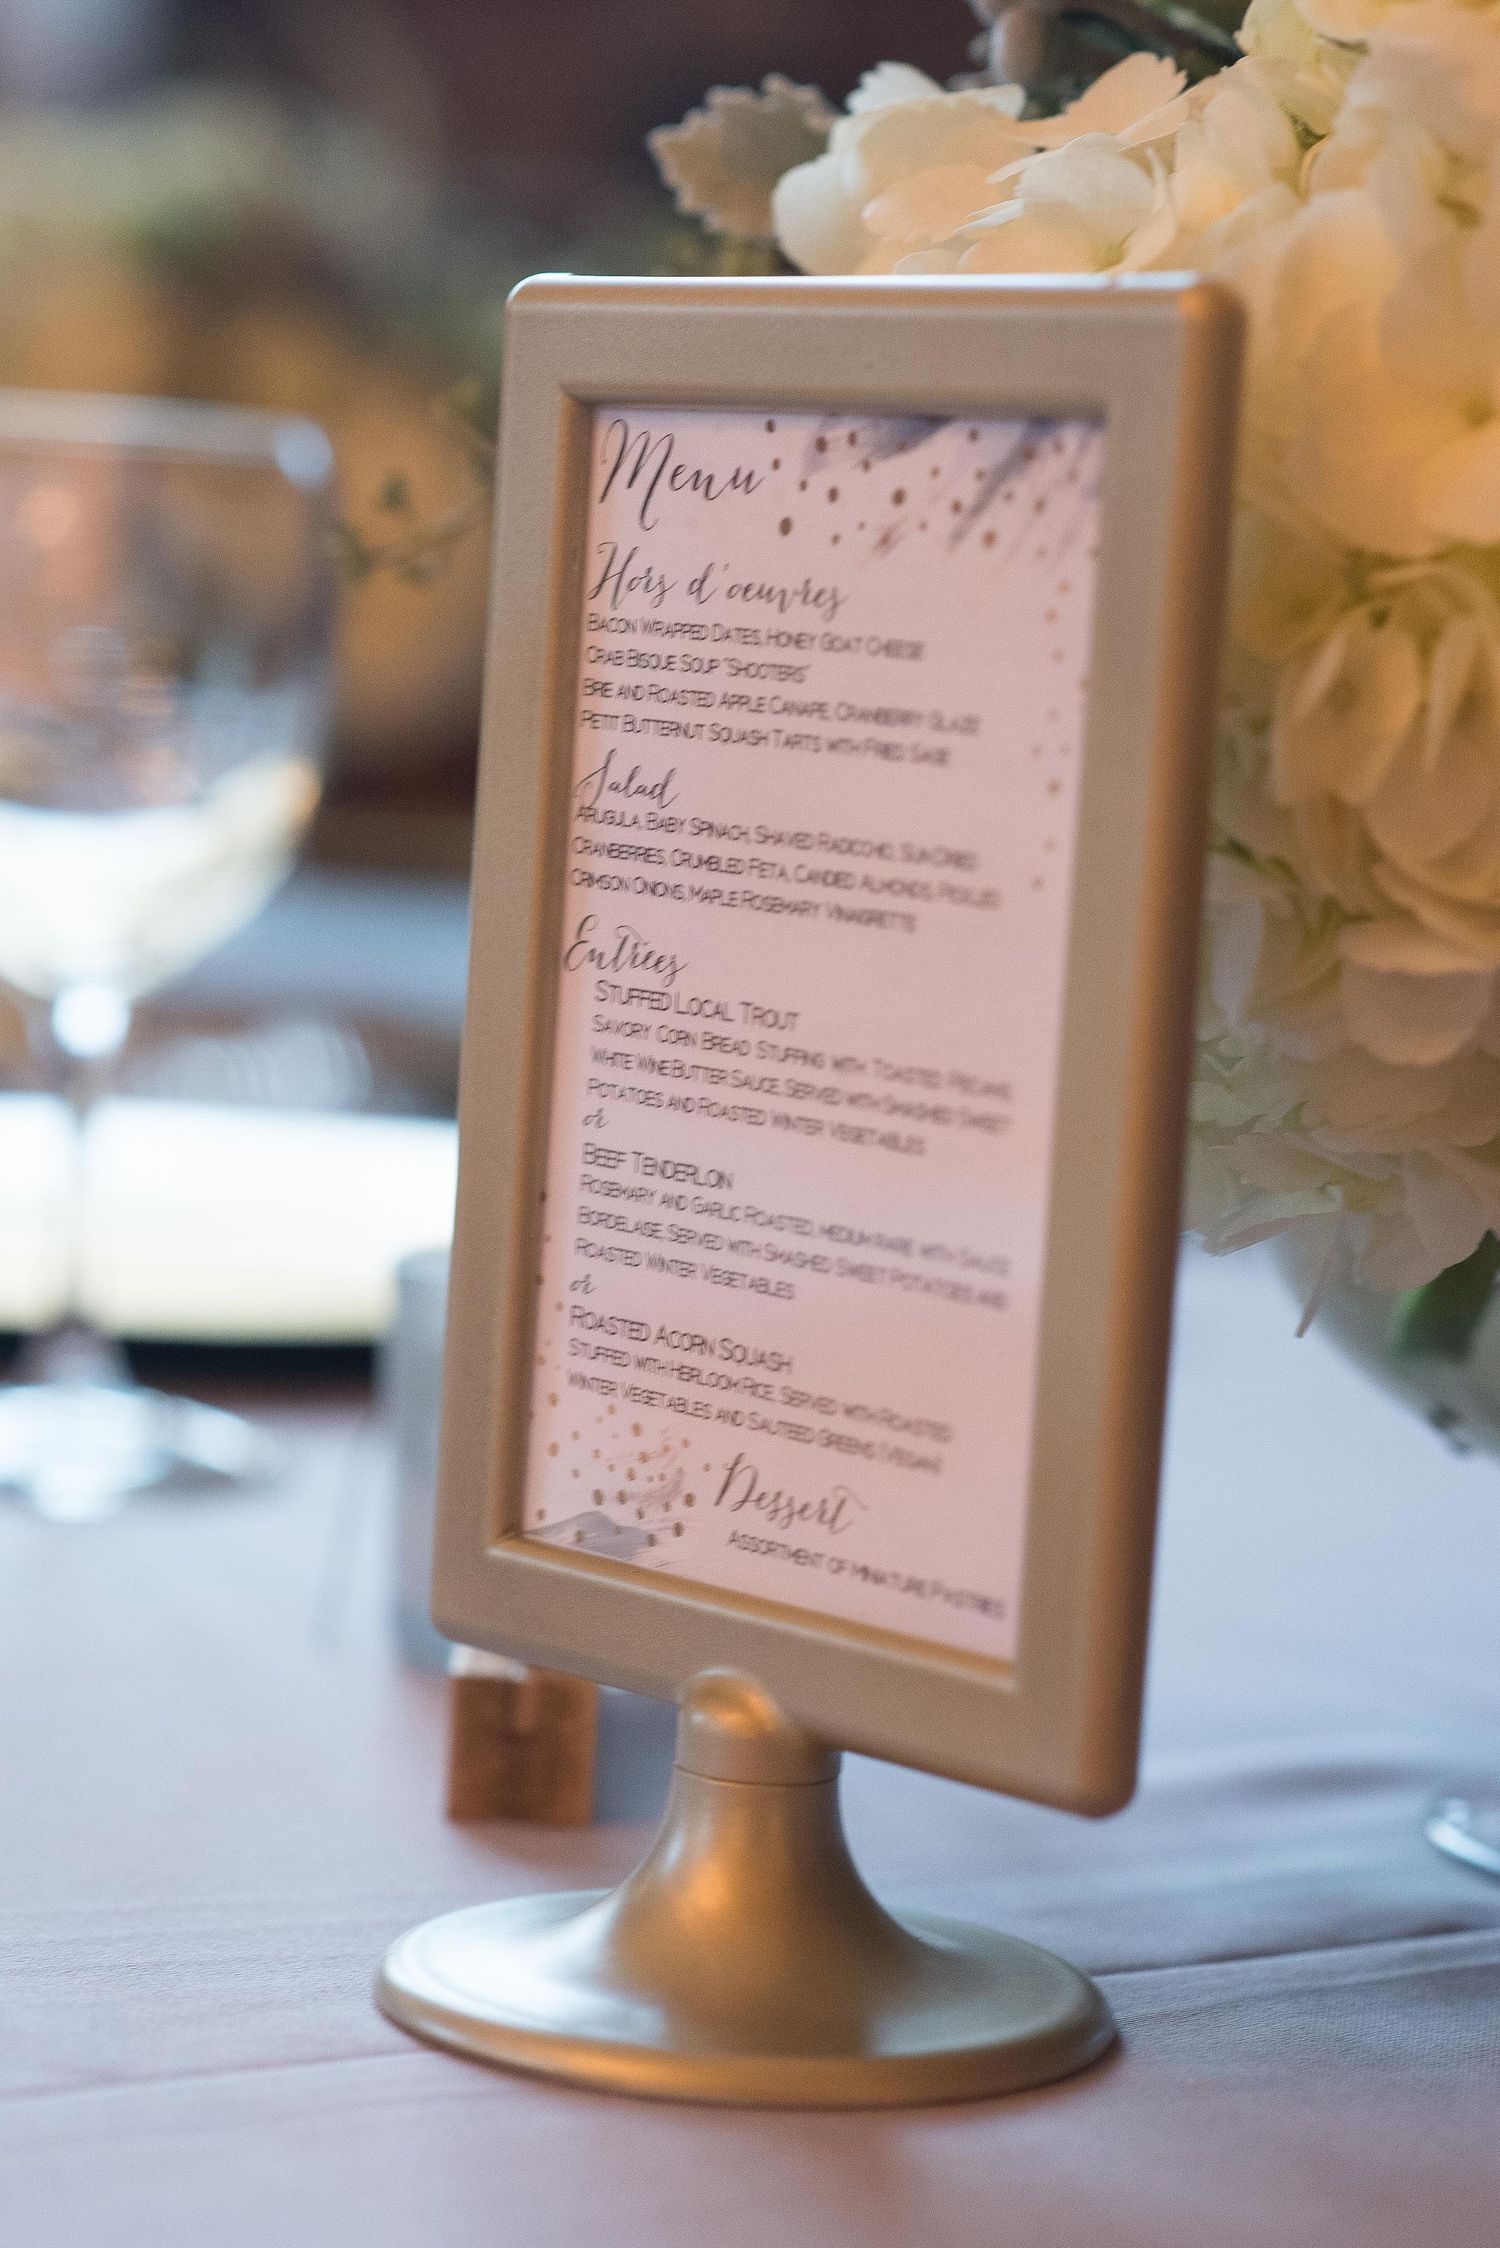 Menu
Hors d'oeuvres
Bacon Wrapped Dates, Honey Goat Cheese
Crab Bisque Soup "Shooters"
Brie and Roasted Apple Canape, Cranberry Glaze
Petit Butternut Squash Tarts with Fried Sage
Salad
Arugula, Baby Spinach, Shaved Radicchio, Sun Dried
Cranberries, Crumbled Feta, Candied Almonds, Pickled
Crimson Onions, Maple Rosemary Vinaigrette
Entrées
Stuffed Local Trout
Savory Corn Bread Stuffing with Toasted Pecans,
White Wine Butter Sauce, Served with Smashed Sweet
Potatoes and Roasted Winter Vegetables
or
Beef Tenderloin
Rosemary and Garlic Roasted, medium rare with Sauce
Bordelaise, Served with Smashed Sweet Potatoes and
Roasted Winter Vegetables
or
Roasted Acorn Squash
Stuffed with Heirloom Rice, Served with Roasted
Winter Vegetables and Sauteed Greens (Vegan)
Dessert
Assortment of Miniature Pastries